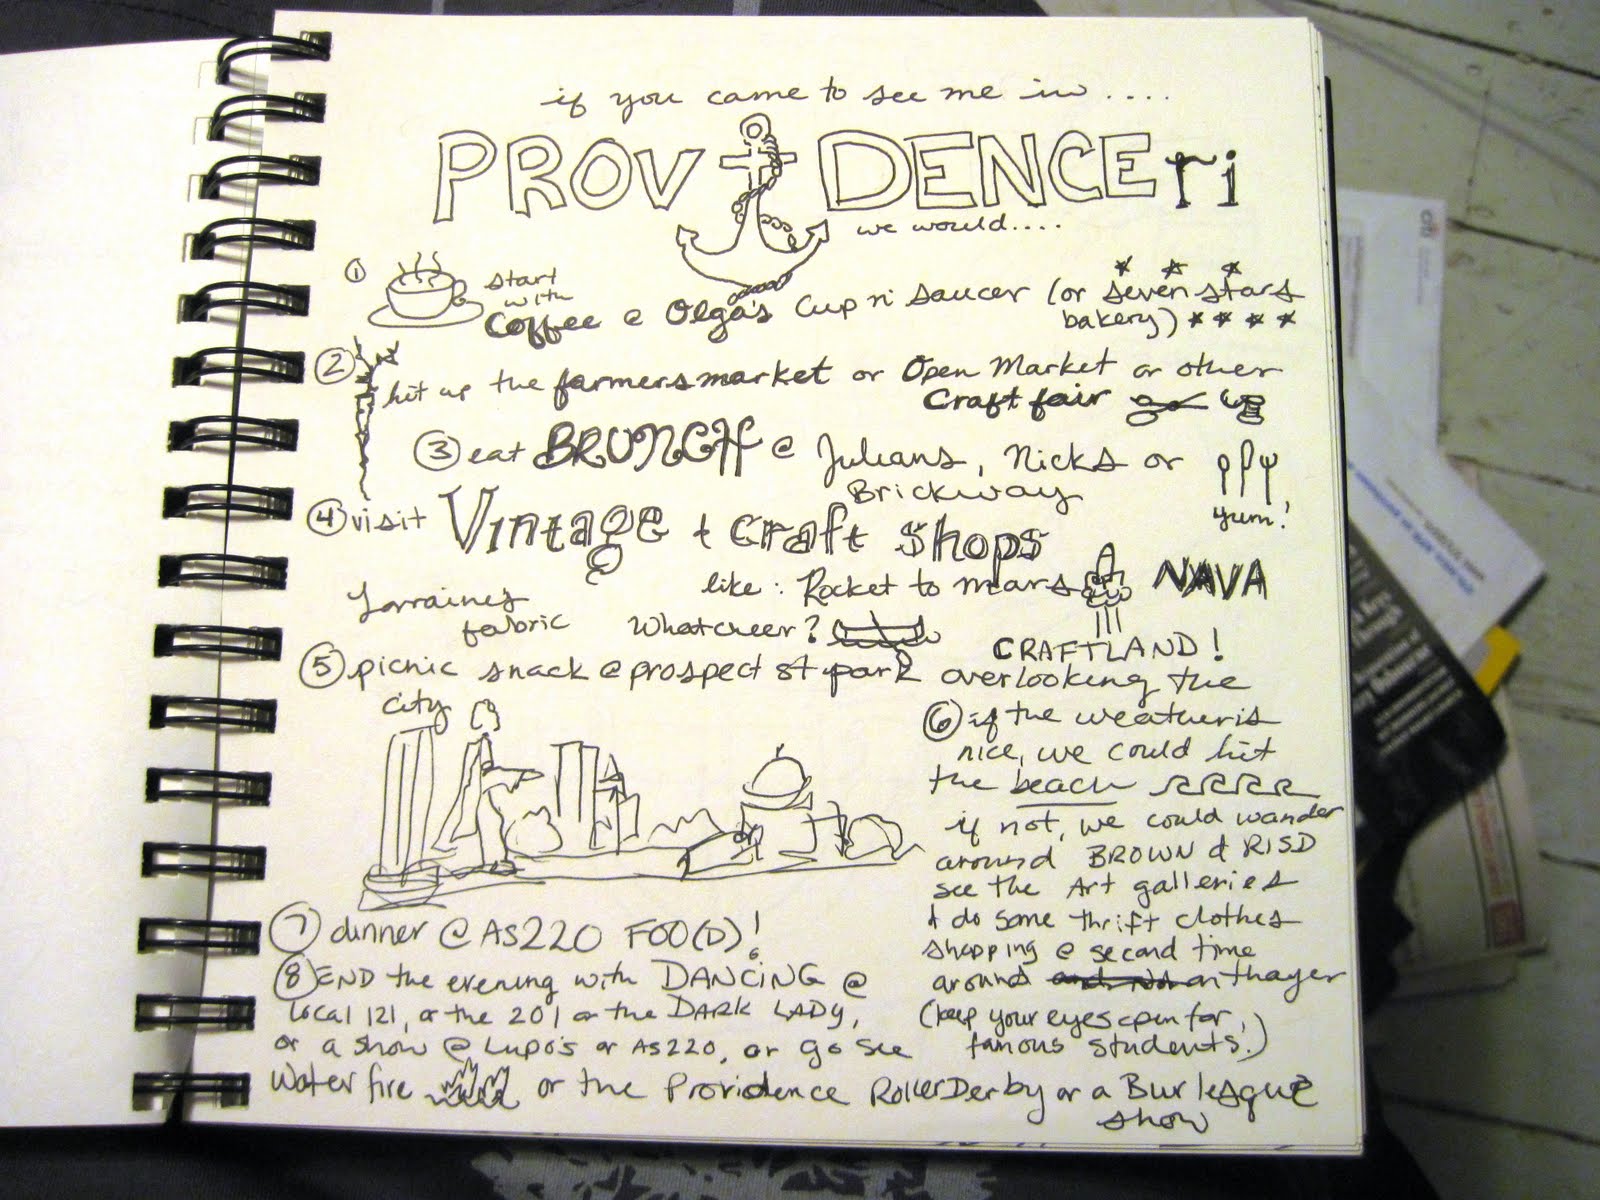 if you came to see me in....
PROVIDENCE ri
we would....
① start with coffee @ Olga's Cup n' saucer (or seven stars bakery)
② hit up the farmers market or Open Market or other
Craft fair
③ eat BRUNCH @ Julians, Nicks or
Brickway
yum!
④ visit Vintage + craft shops
like: Rocket to mars NAVA
Lorraines fabric
Whatcheer?
CRAFTLAND!
⑤ picnic snack @ prospect st park overlooking the
city
⑥ if the weather is
nice, we could hit
the beach
if not, we could wander
around BROWN & RISD
see the Art galleries
& do some thrift clothes
shopping @ second time
around on thayer
(keep your eyes open for
famous students.)
⑦ dinner @ AS220 FOO(D)!
⑧ END the evening with DANCING @
Local 121, or the 201 or the DARK LADY,
or a show @ Lupo's or AS220, or go see
Waterfire or the Providence Roller Derby or a Burlesque
show